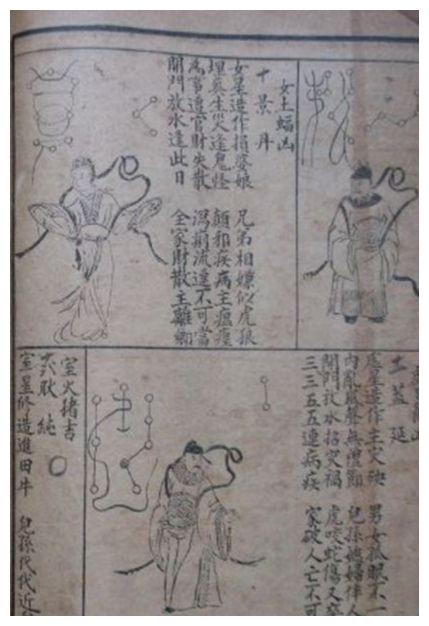 女土蝠凶
十 景丹
女星造作損婆娘 兄弟相嫌似虎狼
埋葬生災逢鬼怪 顛邪疾病主瘟
為事遭官財失散 瀉痢流連不可當
開門放水逢此日 全家財散主離鄉
土 蓋延
虛星造作主災殃 男女孤眠不一
內亂風聲無禮節 兒孫媳婦伴人
開門放水招災禍 虎咬蛇傷又卒
三三五五連病疾 家破人亡不可
室火猪吉
六 耿純
室星修造進田牛 兒孫代代近